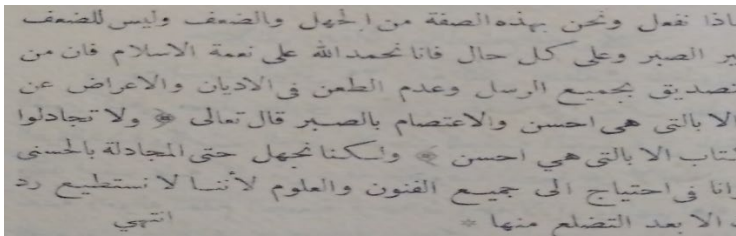 ماذا نفعل ونحن بهذه الصفة من الجهل والضعف وليس للضعف
ير الصبر وعلى كل حال فانا نحمد الله على نعمة الاسلام فان من
تصديق بجميع الرسل وعدم الطعن فى الاديان والاعراض عن
الا بالتى هى احسن والاعتصام بالصبر قال تعالى ﴿ ولا تجادلوا
كتاب الا بالتى هي احسن ﴾ ولكنا نجهل حتى المجادلة بالحسنى
وانا فى احتياج الى جميع الفنون والعلوم لأننا لا نستطيع رد
الا بعد التضلع منها * انتهي